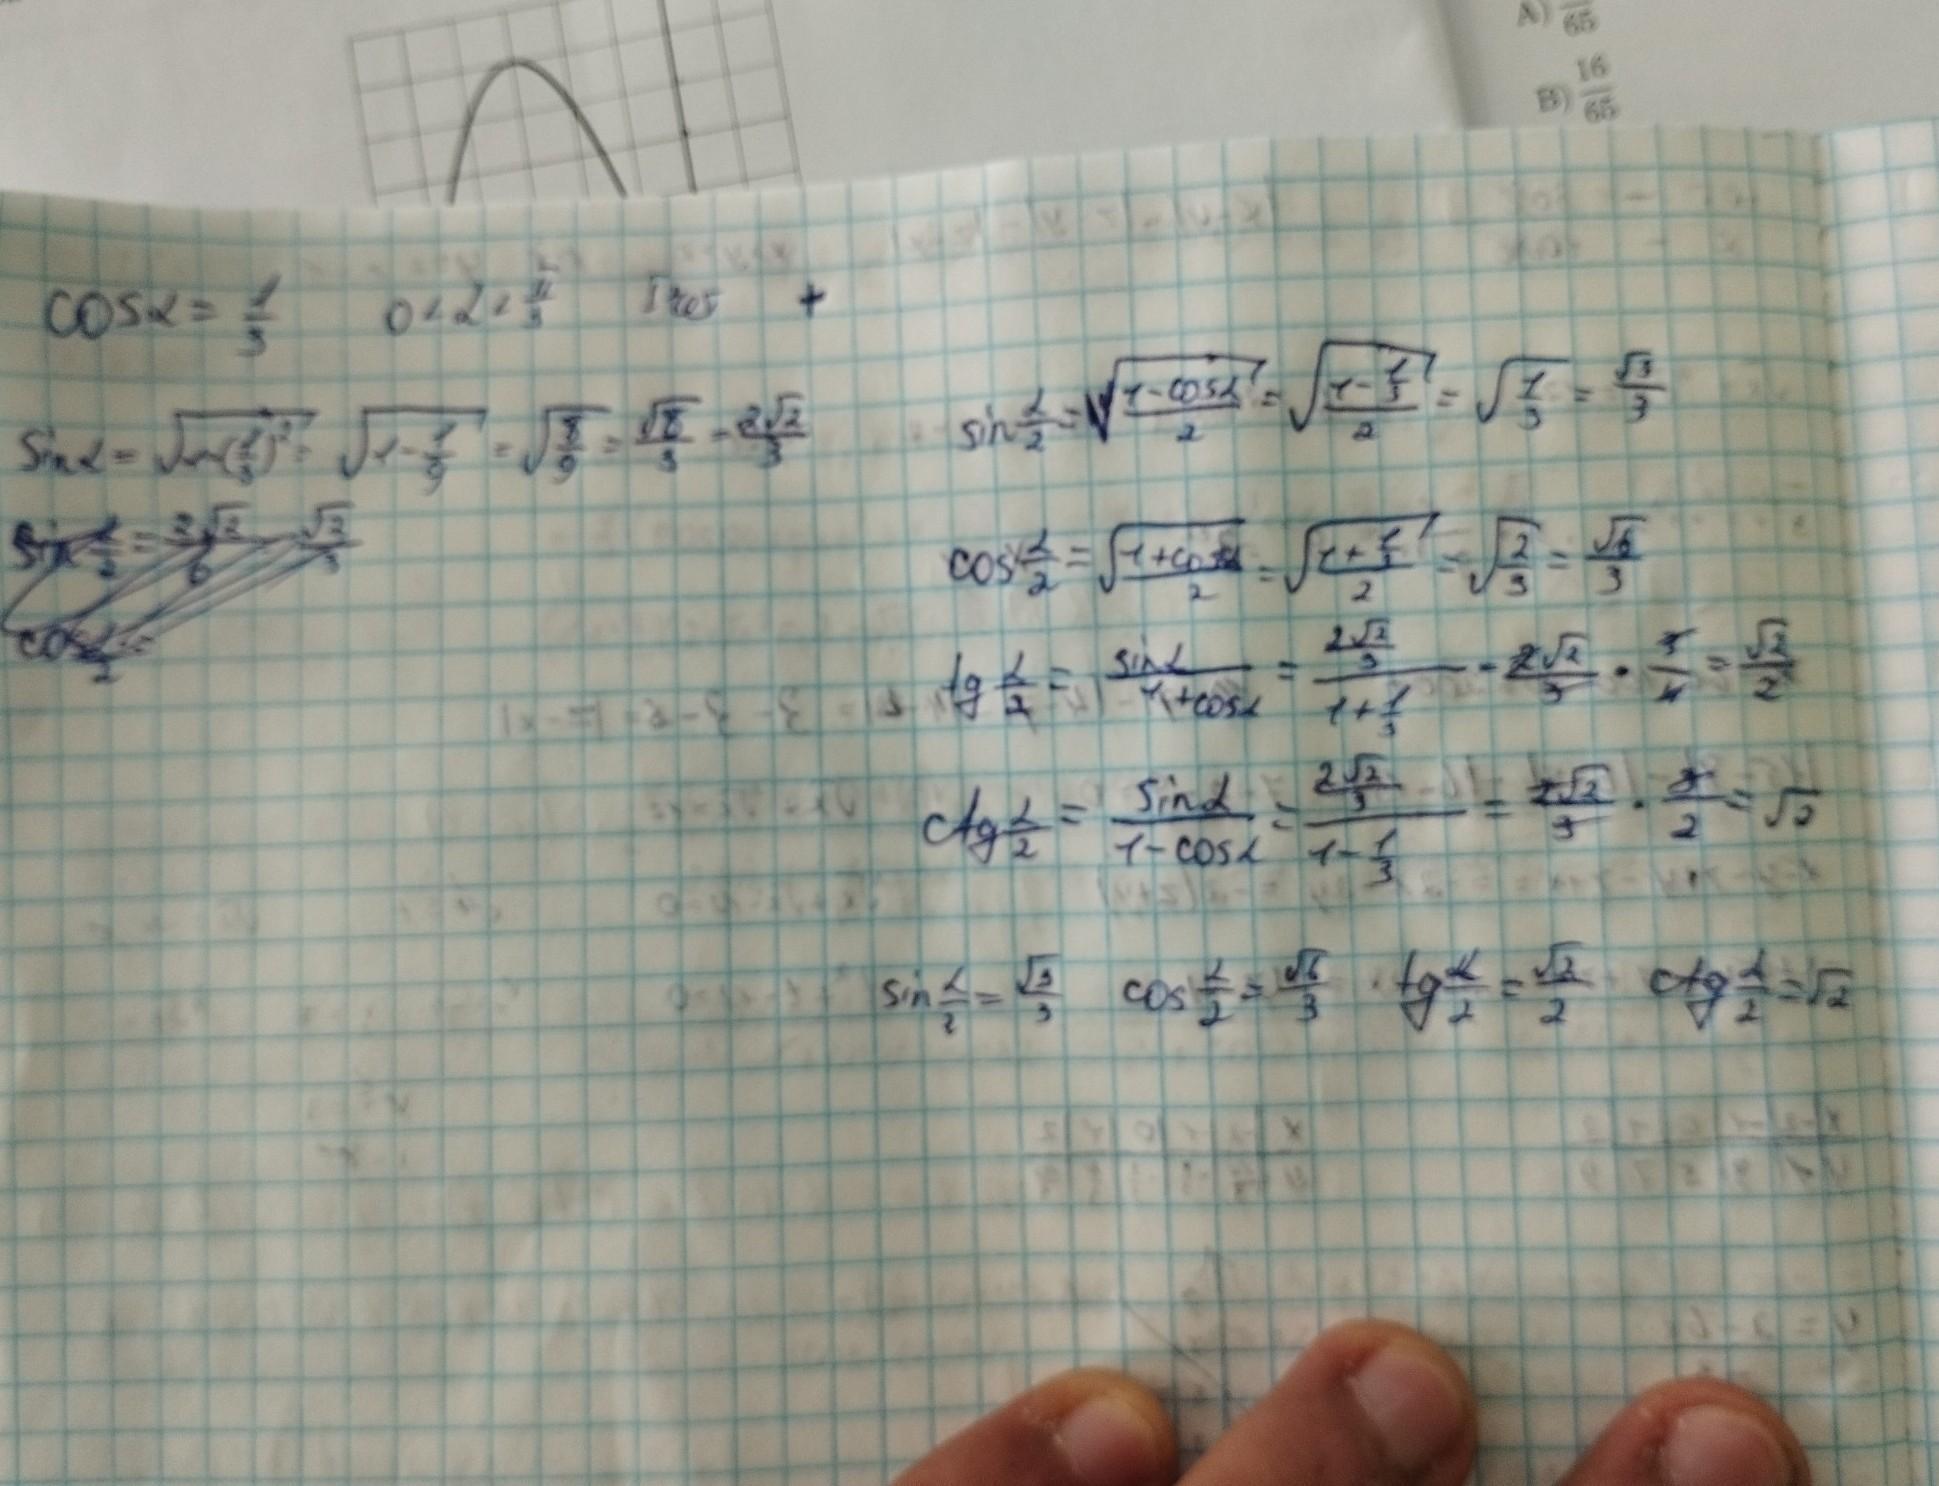 A) /65
B) 16/65
cosα = 1/3 0 < α < π/3 +
sinα = √(1-(1/3)²) = √(1 - 1/9) = √(8/9) = √8/3 = 2√2/3
sin α/2 = 2√2/6 = √2/3
cos α/2 =
sin α/2 = √((1-cosα)/2) = √((1-1/3)/2) = √(1/3) = √3/3
cos α/2 = √((1+cosα)/2) = √((1+1/3)/2) = √(2/3) = √6/3
tg α/2 = sinα/(1+cosα) = (2√2/3)/(1+1/3) = 2√2/3 · 3/4 = √2/2
ctg α/2 = sinα/(1-cosα) = (2√2/3)/(1-1/3) = 2√2/3 · 3/2 = √2
sin α/2 = √3/3 cos α/2 = √6/3 tg α/2 = √2/2 ctg α/2 = √2